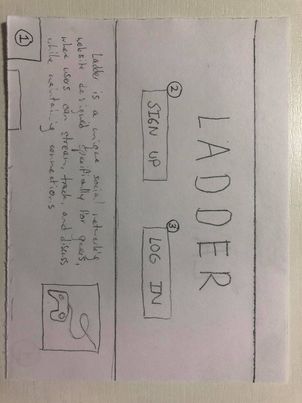 LADDER
2 3
SIGN UP LOG IN
Ladder is a unique social networking
website designed specifically for users,
where users can stream, track, and discuss
while maintaining connections
1